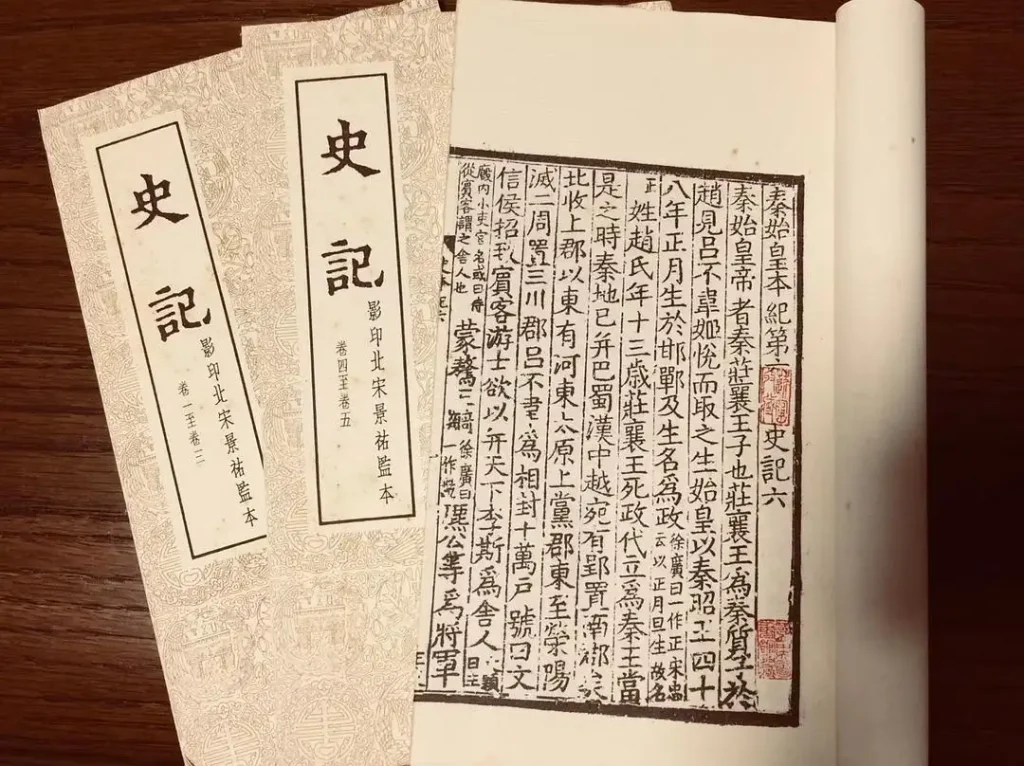 史記
影印北宋景祐監本
卷四至卷五
史記
影印北宋景祐監本
卷一至卷三
秦始皇本紀第六 史記六
秦始皇帝者秦莊襄王子也莊襄王爲秦質子於
趙見呂不韋姬悅而取之生始皇以秦昭王四十
八年正月生於邯鄲及生名爲政徐廣曰一作正宋忠云以正月旦生故名
正姓趙氏年十三歲莊襄王死政代立爲秦王當
是之時秦地已并巴蜀漢中越宛有郢置南郡矣
北收上郡以東有河東太原上黨郡東至滎陽
滅二周置三川郡呂不韋爲相封十萬戶號曰文
信侯招致賓客游士欲以并天下李斯爲舍人文穎曰主
廄內小吏官名或曰侍從賓客謂之舍人也蒙驁王齮徐廣曰一作齕麃公等爲將軍